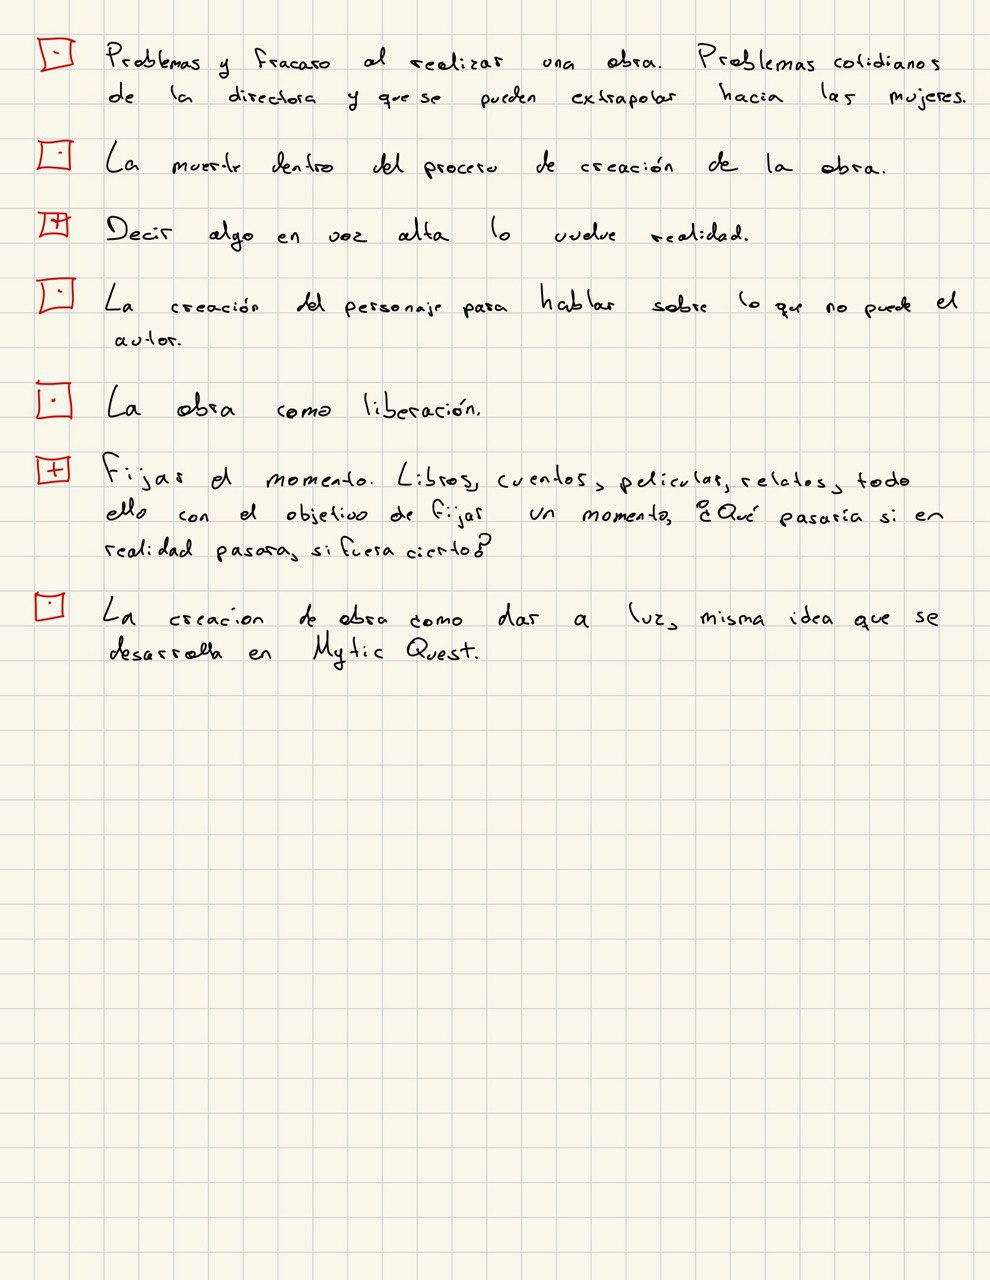 Problemas y fracaso al realizar una obra. Problemas cotidianos
de la directora y que se pueden extrapolar hacia las mujeres.
La muerte dentro del proceso de creación de la obra.
Decir algo en voz alta lo vuelve realidad.
La creación del personaje para hablar sobre lo que no puede el
autor.
La obra como liberación.
Fijar el momento. Libros, cuentos, películas, relatos, todo
ello con el objetivo de fijar un momento, ¿Qué pasaría si en
realidad pasara, si fuera cierto?
La creacion de obra como dar a luz, misma idea que se
desarrolla en Mytic Quest.